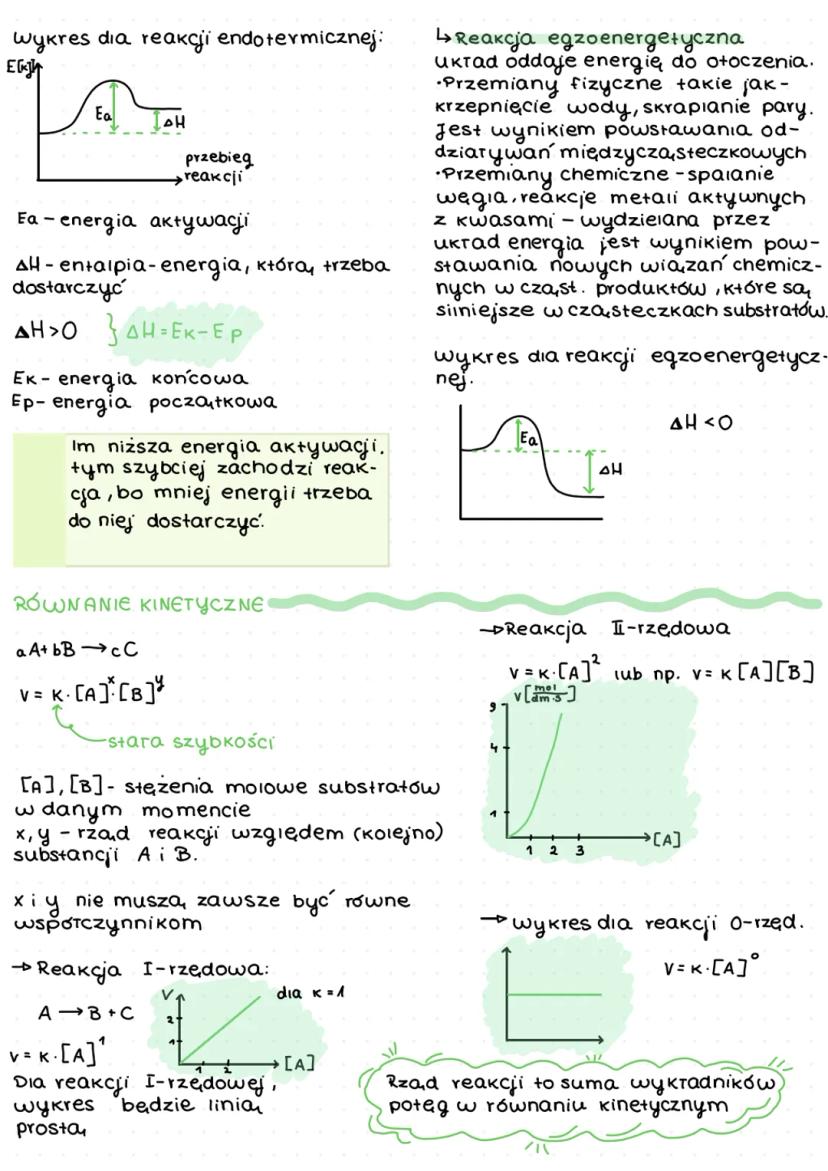 wykres dla reakcji endotermicznej:
E[kJ]
Ea
ΔH
przebieg
reakcji
Ea – energia aktywacji
ΔH - entalpia - energia, którą trzeba
dostarczyć
ΔH > 0 } ΔH = Ek - Ep
Ek - energia końcowa
Ep - energia początkowa
Im niższa energia aktywacji,
tym szybciej zachodzi reak-
cja, bo mniej energii trzeba
do niej dostarczyć.
↳ Reakcja egzoenergetyczna
układ oddaje energię do otoczenia.
•Przemiany fizyczne takie jak -
krzepnięcie wody, skraplanie pary.
Jest wynikiem powstawania od-
działywań międzycząsteczkowych
•Przemiany chemiczne - spalanie
węgla, reakcje metali aktywnych
z kwasami – wydzielana przez
układ energia jest wynikiem pow-
stawania nowych wiązań chemicz-
nych w cząst. produktów, które są
silniejsze w cząsteczkach substratów.
wykres dla reakcji egzoenergetycz-
nej.
ΔH < 0
Ea
ΔH
RÓWNANIE KINETYCZNE
aA + bB → cC
v = k · [A]ˣ · [B]ʸ
stała szybkości
[A], [B] - stężenia molowe substratów
w danym momencie
x, y – rząd reakcji względem (kolejno)
substancji A i B.
x i y nie muszą zawsze być równe
współczynnikom
→ Reakcja I-rzędowa:
A → B + C
v = k · [A]¹
V
dla k = 1
2
1
1 2
[A]
Dla reakcji I-rzędowej,
wykres będzie linią
prostą
→ Reakcja II-rzędowa
v = k · [A]² lub np. v = k [A][B]
v [mol/dm·s]
9
4
1
1 2 3
[A]
→ wykres dla reakcji 0-rzęd.
v = k · [A]⁰
Rząd reakcji to suma wykładników
potęg w równaniu kinetycznym